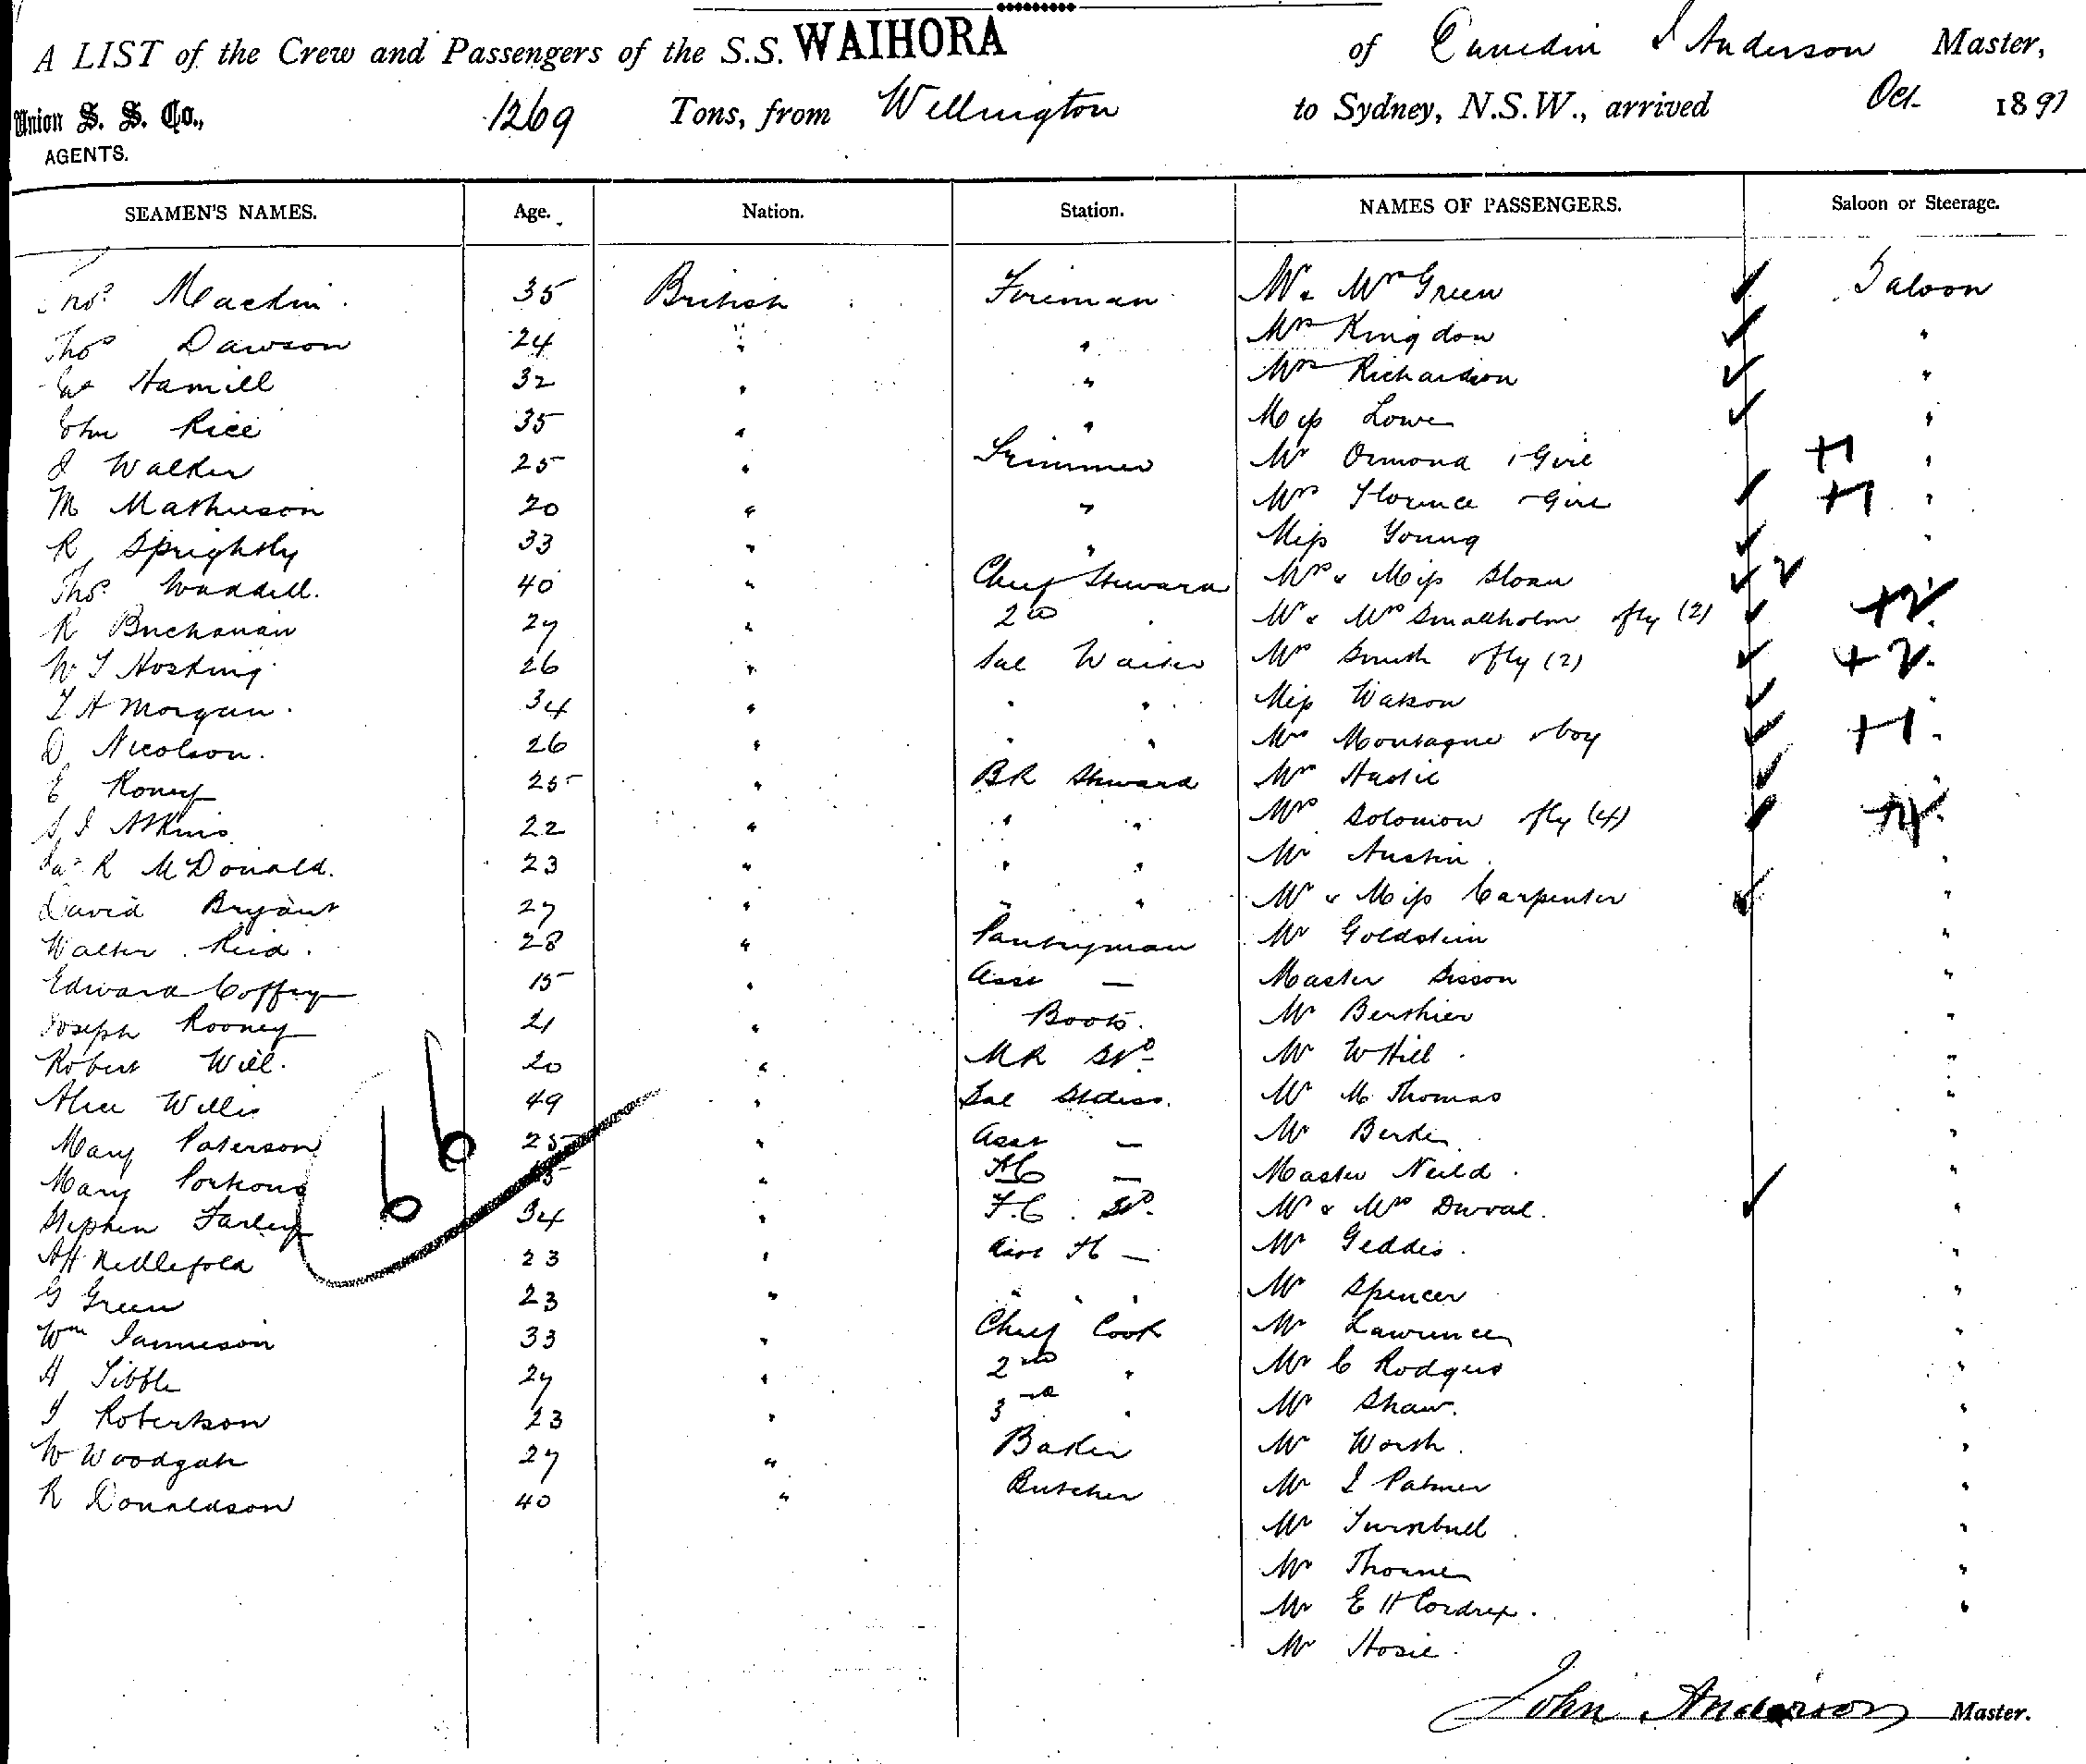 A LIST of the Crew and Passengers of the S.S. WAIHORA of Dunedin J Anderson Master,
Union S. S. Co., AGENTS. 1269 Tons, from Wellington to Sydney, N.S.W., arrived Oct 1891
SEAMEN'S NAMES. Age. Nation. Station. NAMES OF PASSENGERS. Saloon or Steerage.
Mackin. 35 British Fireman Mr & Mrs Green Saloon
Thos Dawson 24 " " Mrs Kingdon "
Hamill 32 " " Mrs Richardson "
John Rice 35 " " Miss Lowe "
J Walker 25 " Trimmer Mr Ormond 1 Girl +1 "
M Mathieson 20 " " Mrs Florence & Girl +1 "
R Sprightly 33 " " Miss Young "
Thos Waddell. 40 " Chief Steward Mrs & Miss Sloan 2
R Buchanan 27 " 2nd " Mr & Mrs Smallholm & fly (2) +2
W J Hosking 26 " Sal Waiter Mrs Smith & fly (2) +2
T A Morgan. 34 " " " Miss Watson "
D Nicolson. 26 " " " Mrs Montague & boy +1 "
E Roney 25 " BR Steward Mr Hastie "
S J Atkins 22 " " " Mrs Solomon & fly (4) +4
Jas R McDonald. 23 " " " Mr Austin. "
David Bryant 27 " " " Mr & Miss Carpenter "
Walter Reid. 28 " Pantryman Mr Goldstein "
Edward Coffey 15 " Asst — Master Sisson "
Joseph Rooney 21 " Boots. Mr Berthier "
Robert Will. 20 " MR Std Mr W Hill. "
Alice Willis 49 " Sal Stdess. Mr M Thomas "
Mary Paterson 25 " Asst — Mr "
Mary " — Master Neild. "
Stephen Farley 34 " F.C. Std. Mr & Mrs Duval. "
A H Nettlefold 23 " — Mr Geddis. "
G Green 23 " " " " Mr Spencer "
Wm Jamieson 33 " Chief Cook Mr Lawrence "
H Tibble 27 " 2nd " Mr C Rodgers "
J Robertson 23 " 3rd " Mr Shaw. "
W Woodgate 27 " Baker Mr Worth. "
R Donaldson 40 " Butcher Mr J Palmer "
Mr Turnbull. "
Mr Thorne "
Mr E H "
Mr Hosie.
66
John Anderson Master.